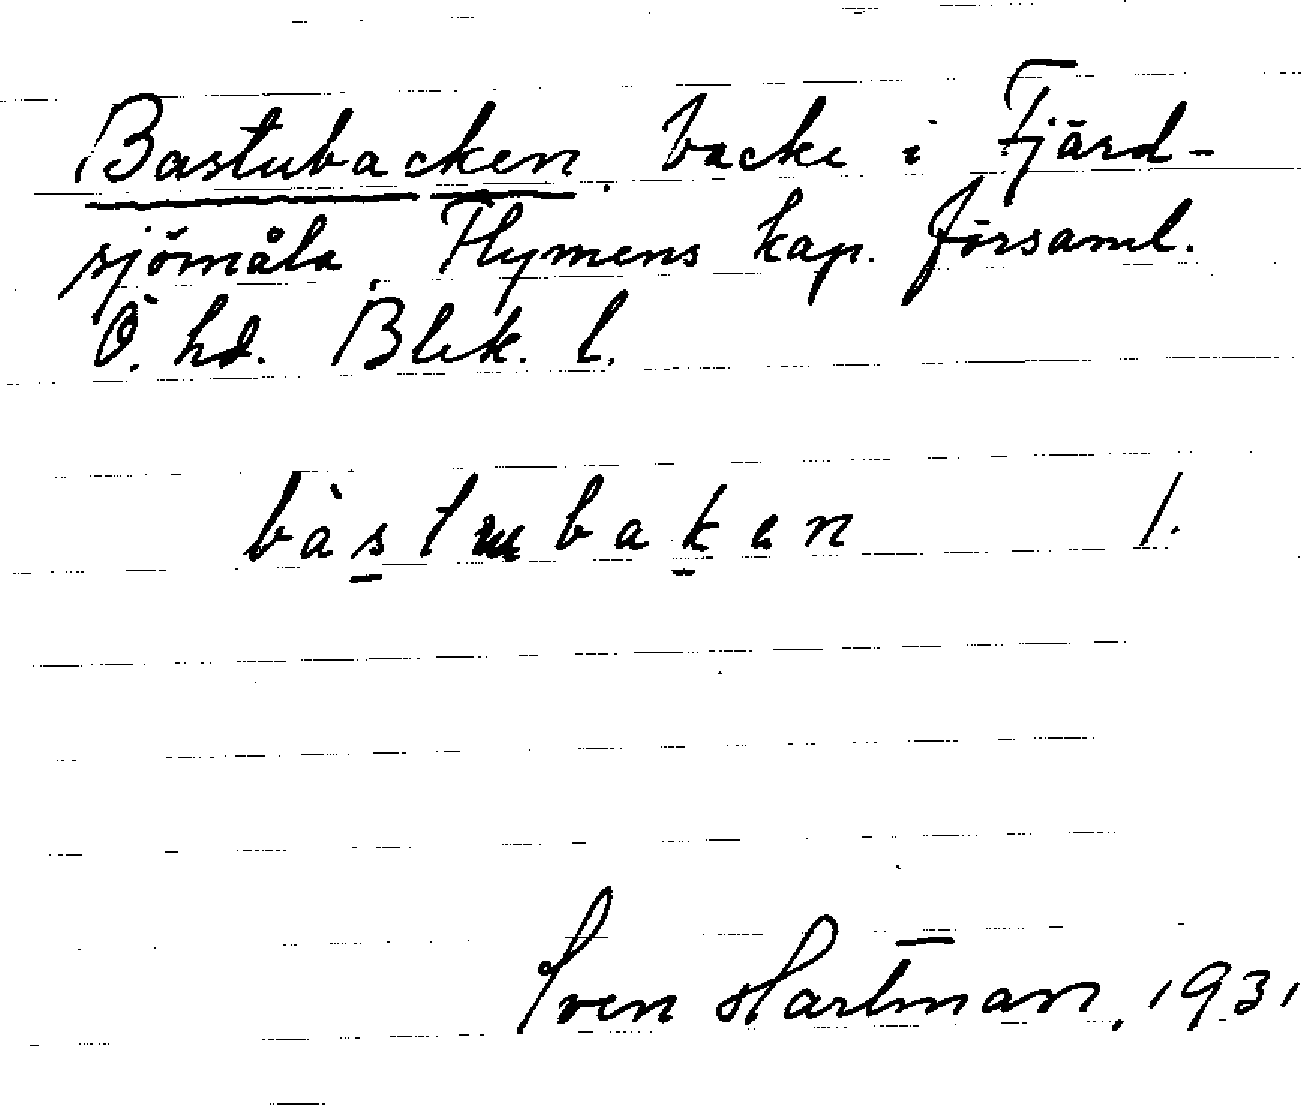 Bastubacken, backe i Fjärd-
sjömåla, Flymens kap. församl.
Ö. hd. Blek. l.
bàstɯbaken 1.
Sven Hartman, 1931